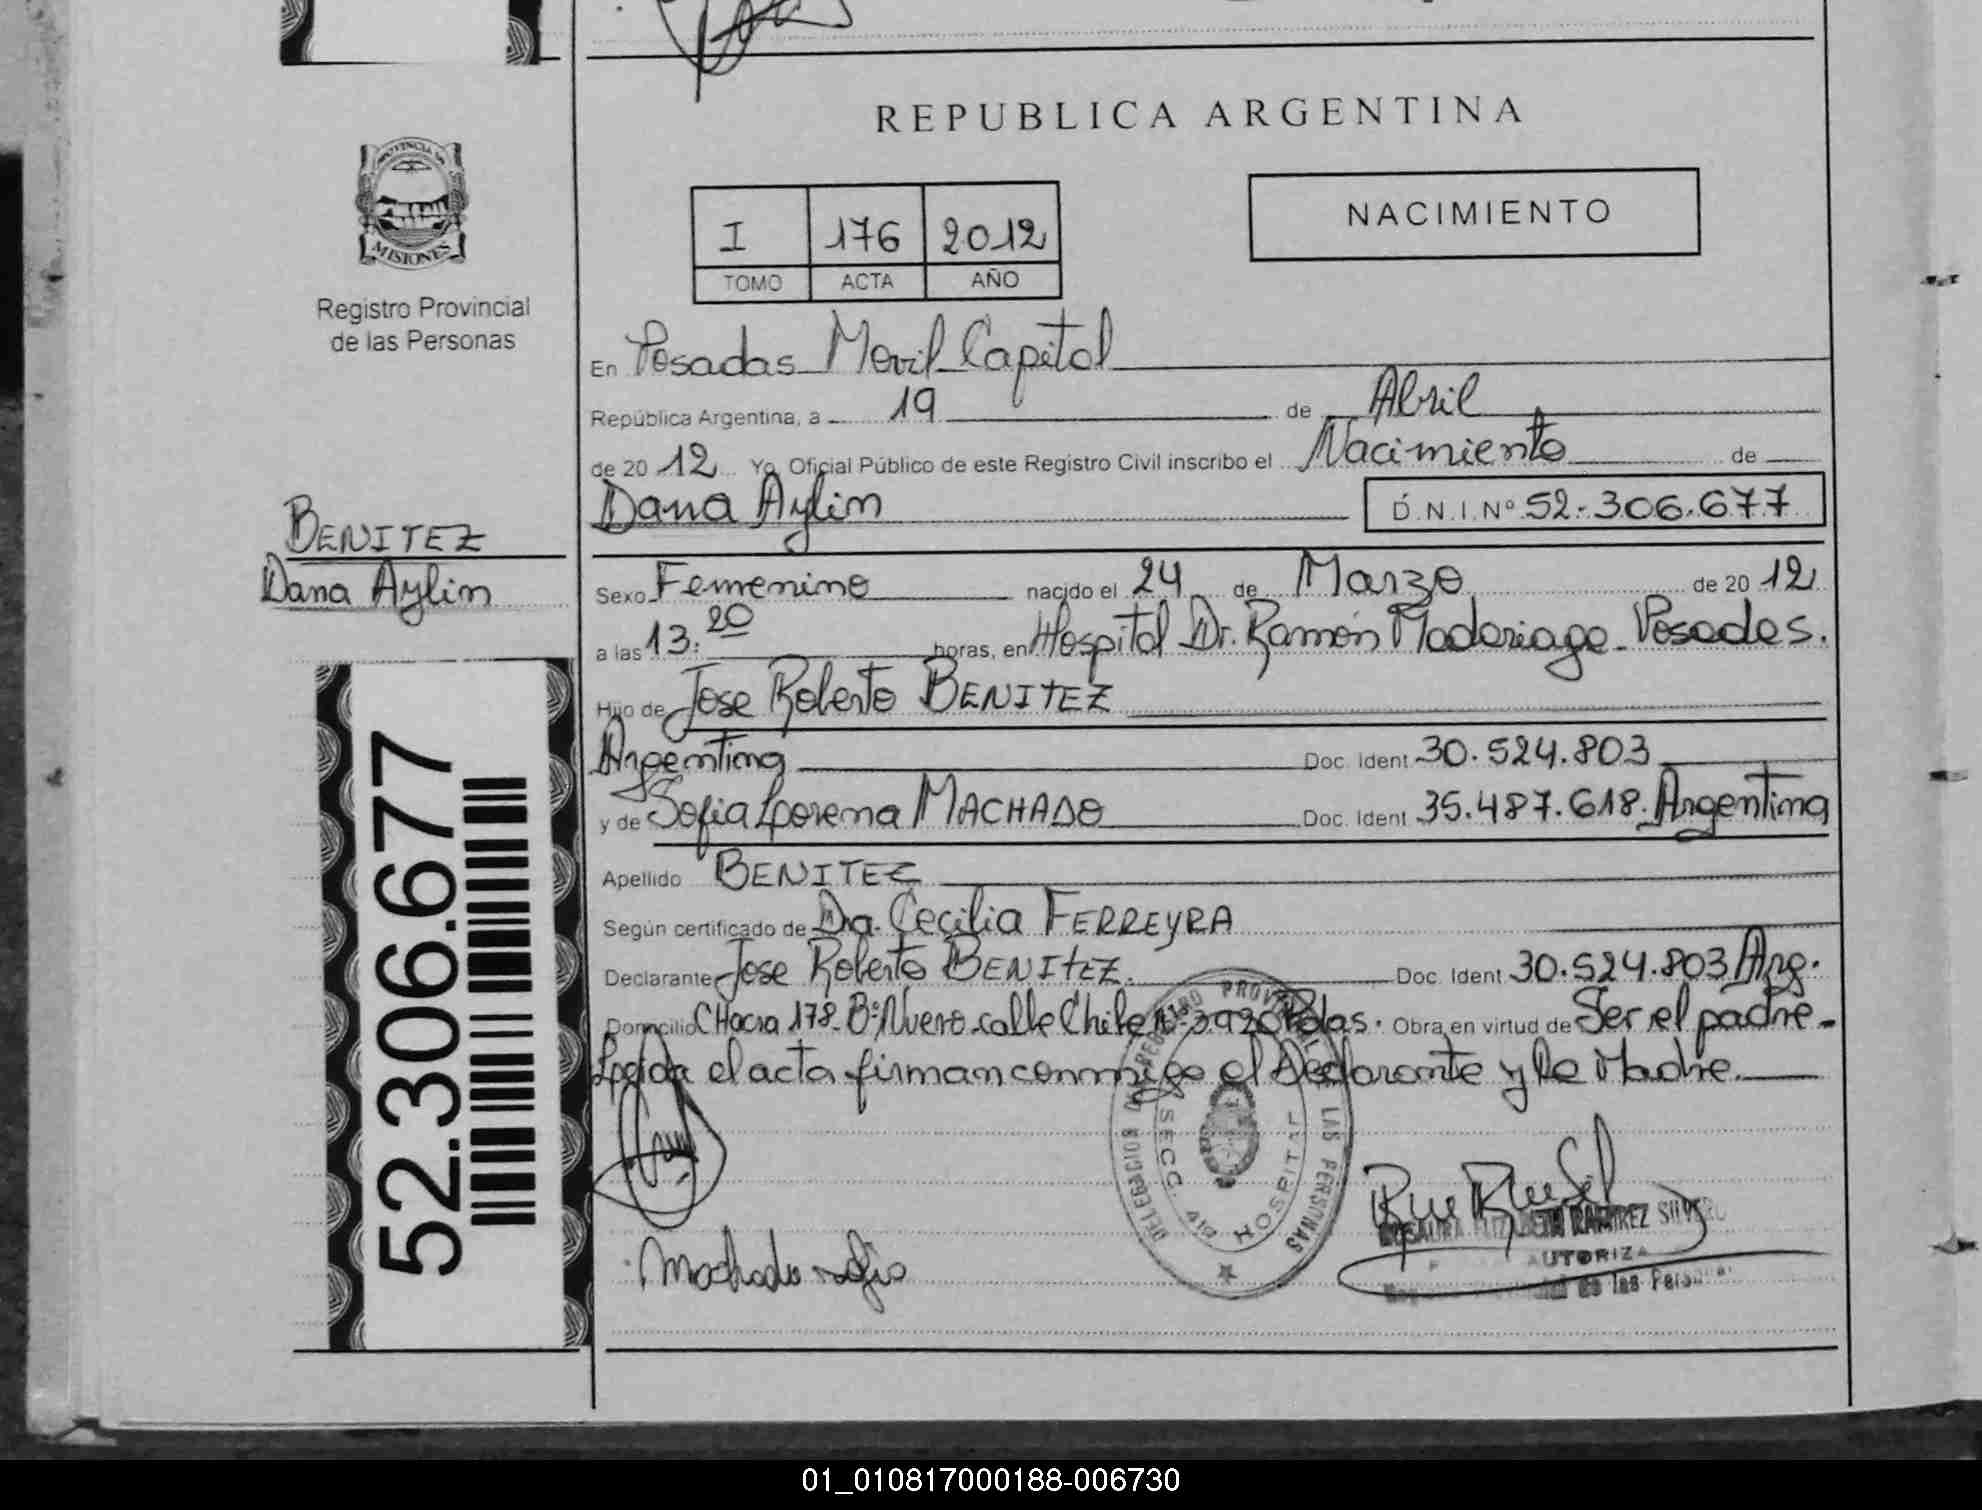 REPUBLICA ARGENTINA
PROVINCIA DE
MISIONES
Registro Provincial
de las Personas
NACIMIENTO
I 176 2012
TOMO ACTA AÑO
En Posadas Movil Capital
República Argentina, a 19 de Abril
de 20 12 Yo Oficial Público de este Registro Civil inscribo el Nacimiento de
Dana Aylin D.N.I. Nº 52.306.677
BENITEZ
Dana Aylin
Sexo Femenino nacido el 24 de Marzo de 20 12
a las 13:20 horas, en Hospital Dr. Ramón Madariaga - Posadas.
Hijo de Jose Roberto BENITEZ
Argentina Doc. Ident 30.524.803
y de Sofia Lorena MACHADO Doc. Ident 35.487.618. Argentina
Apellido BENITEZ
Según certificado de Dra. Cecilia FERREYRA
Declarante Jose Roberto BENITEZ. Doc. Ident 30.524.803 Arg.
Domicilio CHacra 178. Bº: Nuevo calle Chile Nº 3920 Pdas. Obra en virtud de Ser el padre -
Leida el acta firman conmigo el Declarante y la Madre.
52.306.677
DELEGACION DE REGISTRO PROVINCIAL DE LAS PERSONAS
SECC. 419 HOSPITAL
Machado Sofia
ROSAURA ELIZABETH RAMIREZ SILVERO
AUTORIZA
de las Personas
01_010817000188-006730